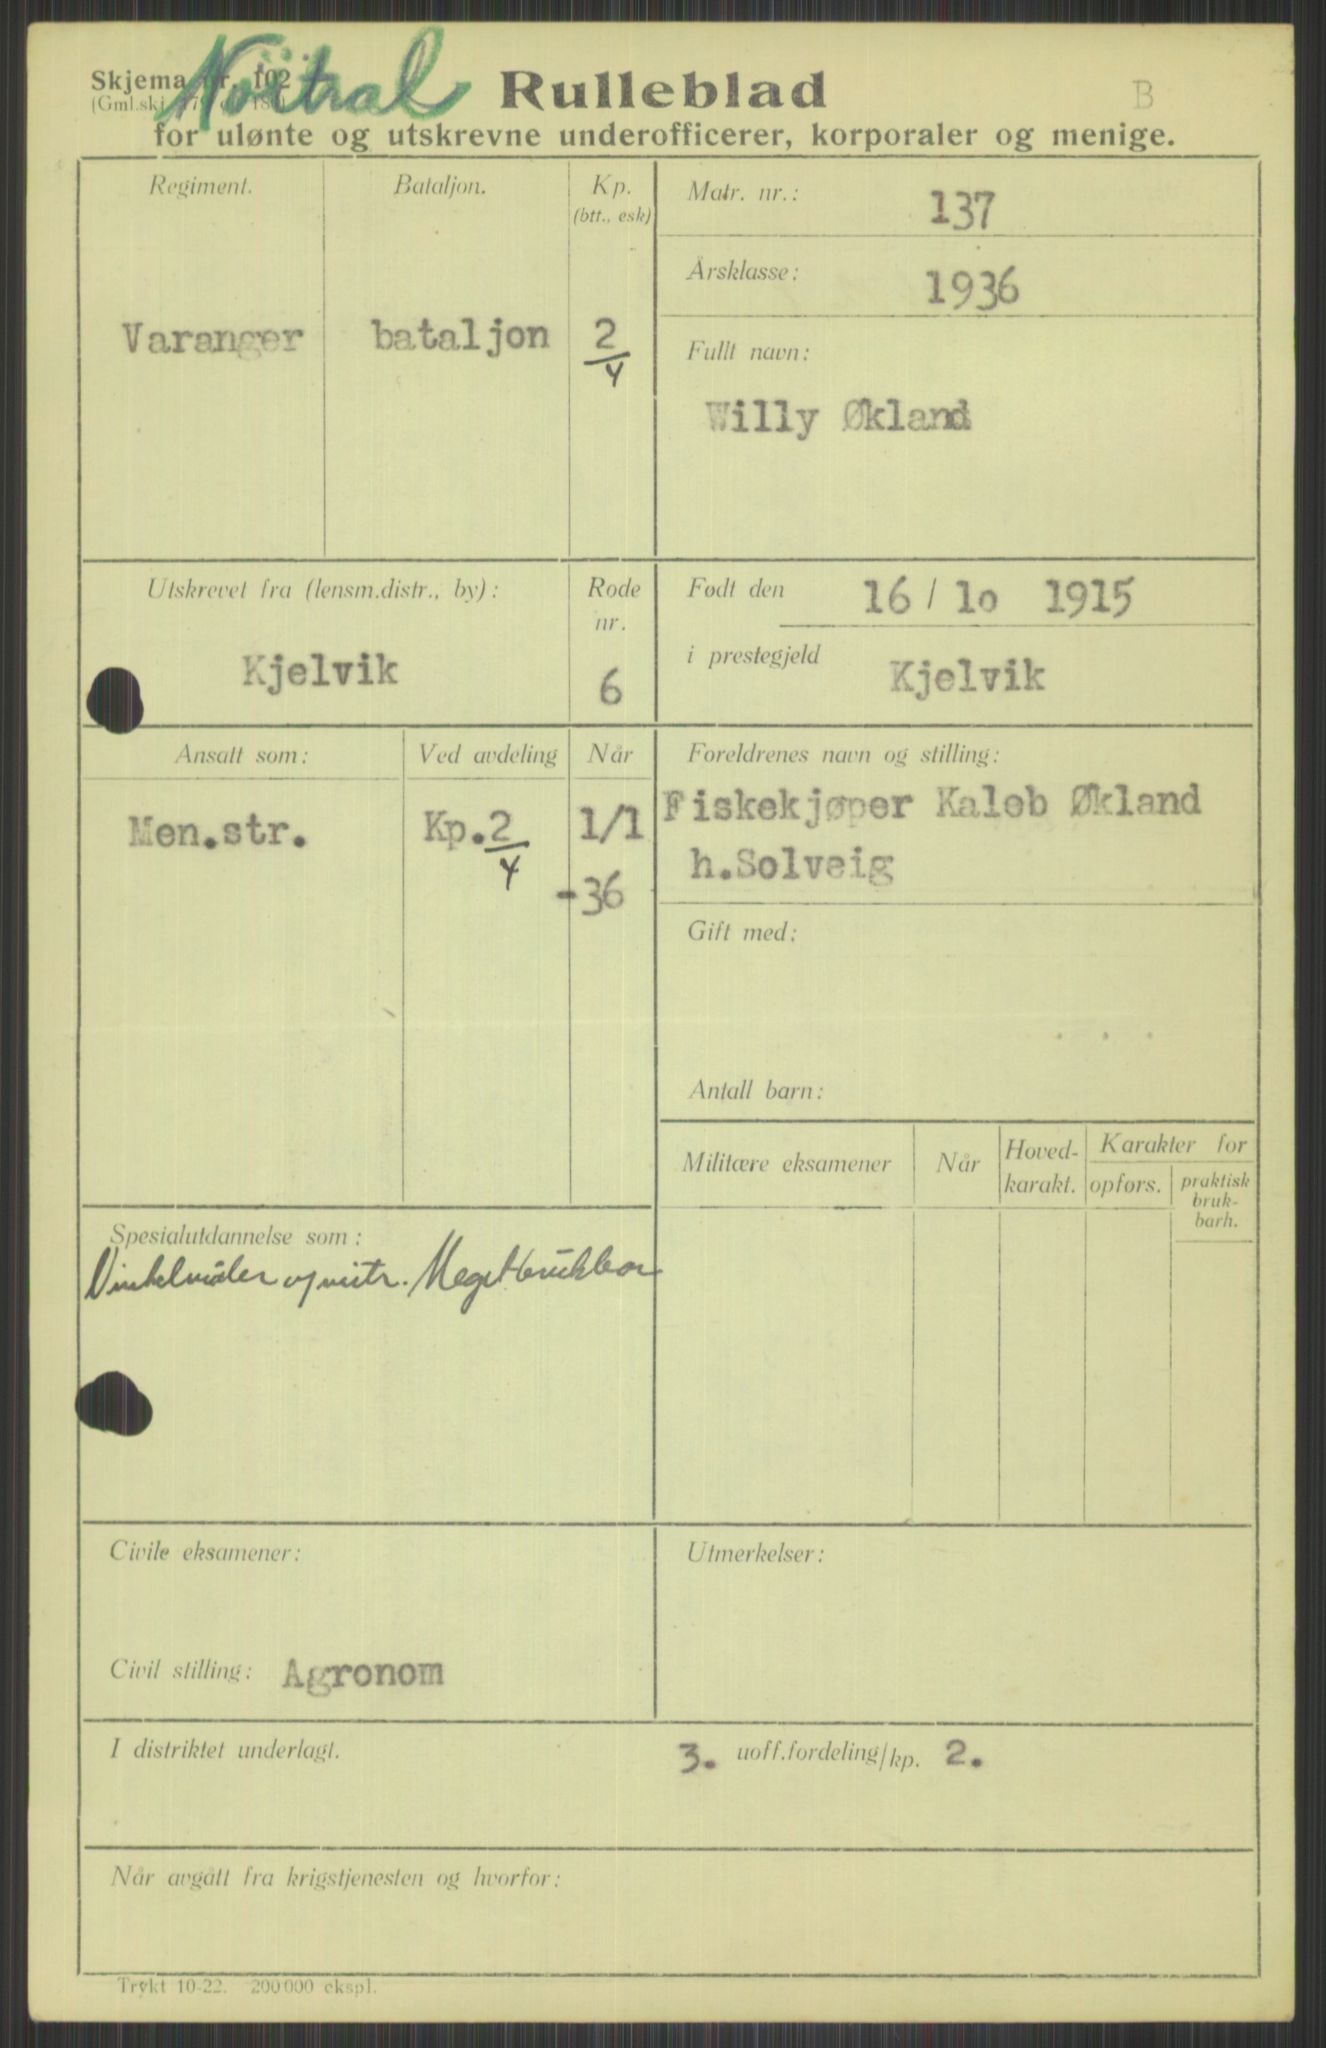 Nöitral
Skjema nr. 102
Rulleblad
B
for ulønte og utskrevne underofficerer, korporaler og menige.
Regiment.
Bataljon.
Kp.
(btt., esk)
Varanger
bataljon
2/4
Matr. nr.: 137
Årsklasse: 1936
Fullt navn:
Willy Økland
Utskrevet fra (lensm.distr., by):
Kjelvik
Rode
nr.
6
Født den 16 / 10 1915
i prestegjeld Kjelvik
Ansatt som:
Ved avdeling
Når
Men.str.
Kp. 2/4
1/1
-36
Foreldrenes navn og stilling:
Fiskekjøper Kaleb Økland
h.Solveig
Gift med:
Antall barn:
Militære eksamener
Når
Hoved-
karakt.
Karakter for
opførs.
praktisk
bruk-
barh.
Spesialutdannelse som:
Vinkelmåler og mitr. Meget brukbar
Civile eksamener:
Civil stilling: Agronom
Utmerkelser:
I distriktet underlagt.
3. uoff.fordeling/kp. 2.
Når avgått fra krigstjenesten og hvorfor:
Trykt 10-22. 200 000 ekspl.